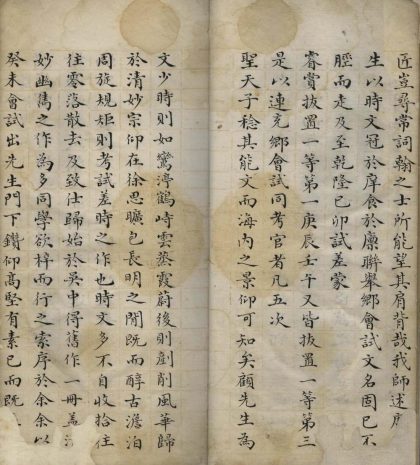 匠豈尋常詞翰之士所能望其肩背哉我師述
生以時文冠於庠食於廩聯舉鄉會試文名固已不
脛而走及至乾隆己卯試差蒙
睿賞拔置一等第一庚辰壬午又皆拔置一等第三
是以連充鄉會試同考官者凡五次
聖天子稔其能文而海內之景仰可知矣顧先生為
文少時則如鸞渟鶴峙雲蒸霞蔚後則剷削風華歸
於清妙宗仰在徐思曠包長明之閒既而醇古澹泊
周旋規矩則考試差時之作也時文多不自收拾往
往零落散去及致仕歸始於吳中得舊作一冊蓋
妙幽雋之作為多同學欲梓而行之索序於余余以
癸未會試出先生門下鑽仰高堅有素已而既